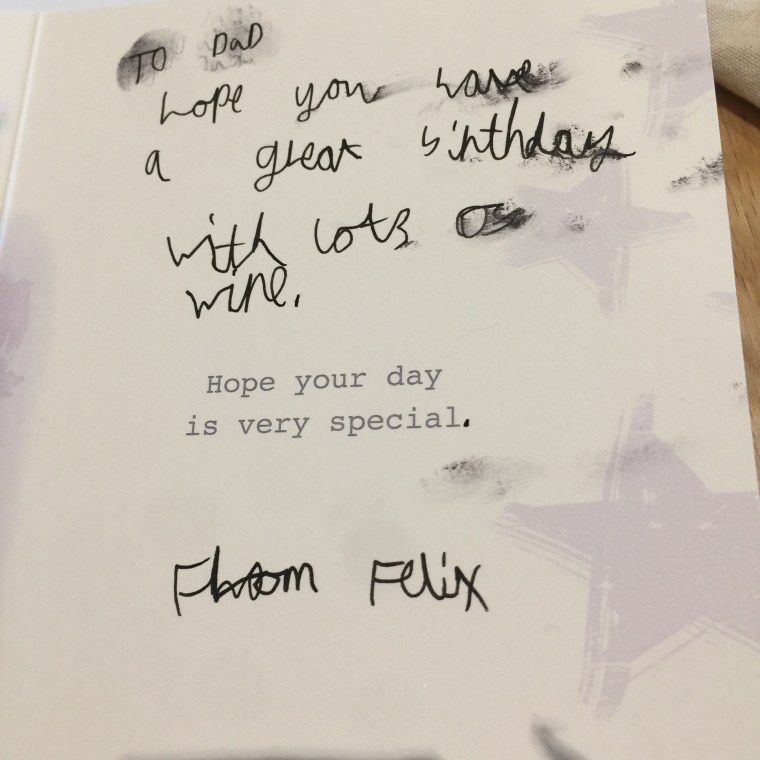 TO DaD
hope you have
a great birthday
with lots of
wine.
Hope your day
is very special.
From Felix